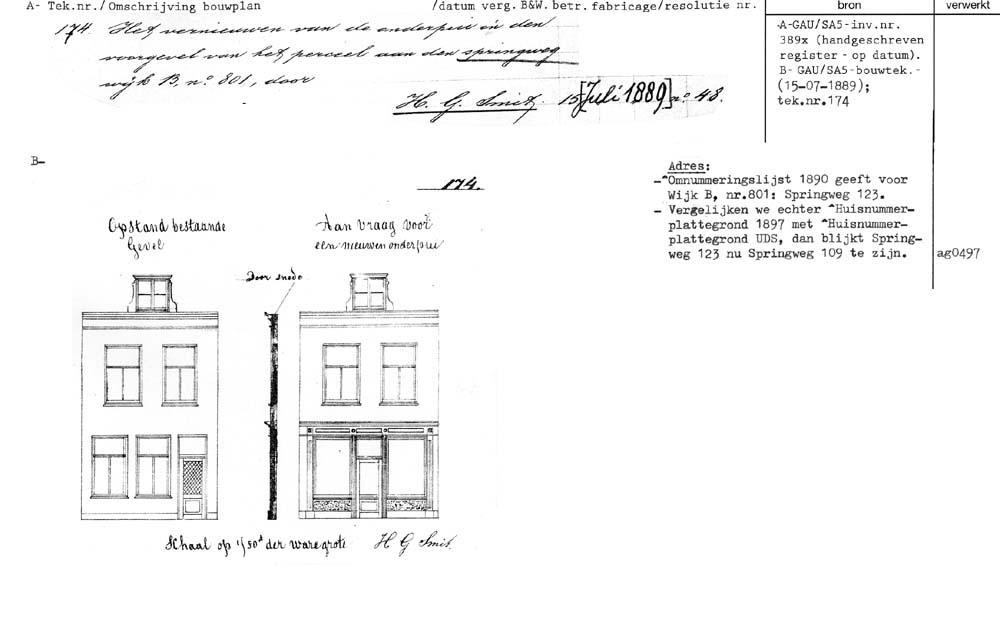 A- Tek.nr./Omschrijving bouwplan /datum verg. B&W. betr. fabricage/resolutie nr. bron verwerkt
174. Het vernieuwen van de onderpui in den
voorgevel van het perceel aan den springweg
wijk B. no. 801, door
H. G. Smit. 15 [Juli 1889] no. 48.
A-GAU/SA5-inv.nr.
389x (handgeschreven
register - op datum).
B- GAU/SA5-bouwtek.-
(15-07-1889);
tek.nr.174
B-
174.
Opstand bestaande
Gevel
Aan vraag voor
een nieuwen onderpui
Door snede
Schaal op 1/50e der ware grote H G Smit.
Adres:
-^Omnummeringslijst 1890 geeft voor
Wijk B, nr.801: Springweg 123.
- Vergelijken we echter ^Huisnummer-
plattegrond 1897 met ^Huisnummer-
plattegrond UDS, dan blijkt Spring-
weg 123 nu Springweg 109 te zijn.
ag0497